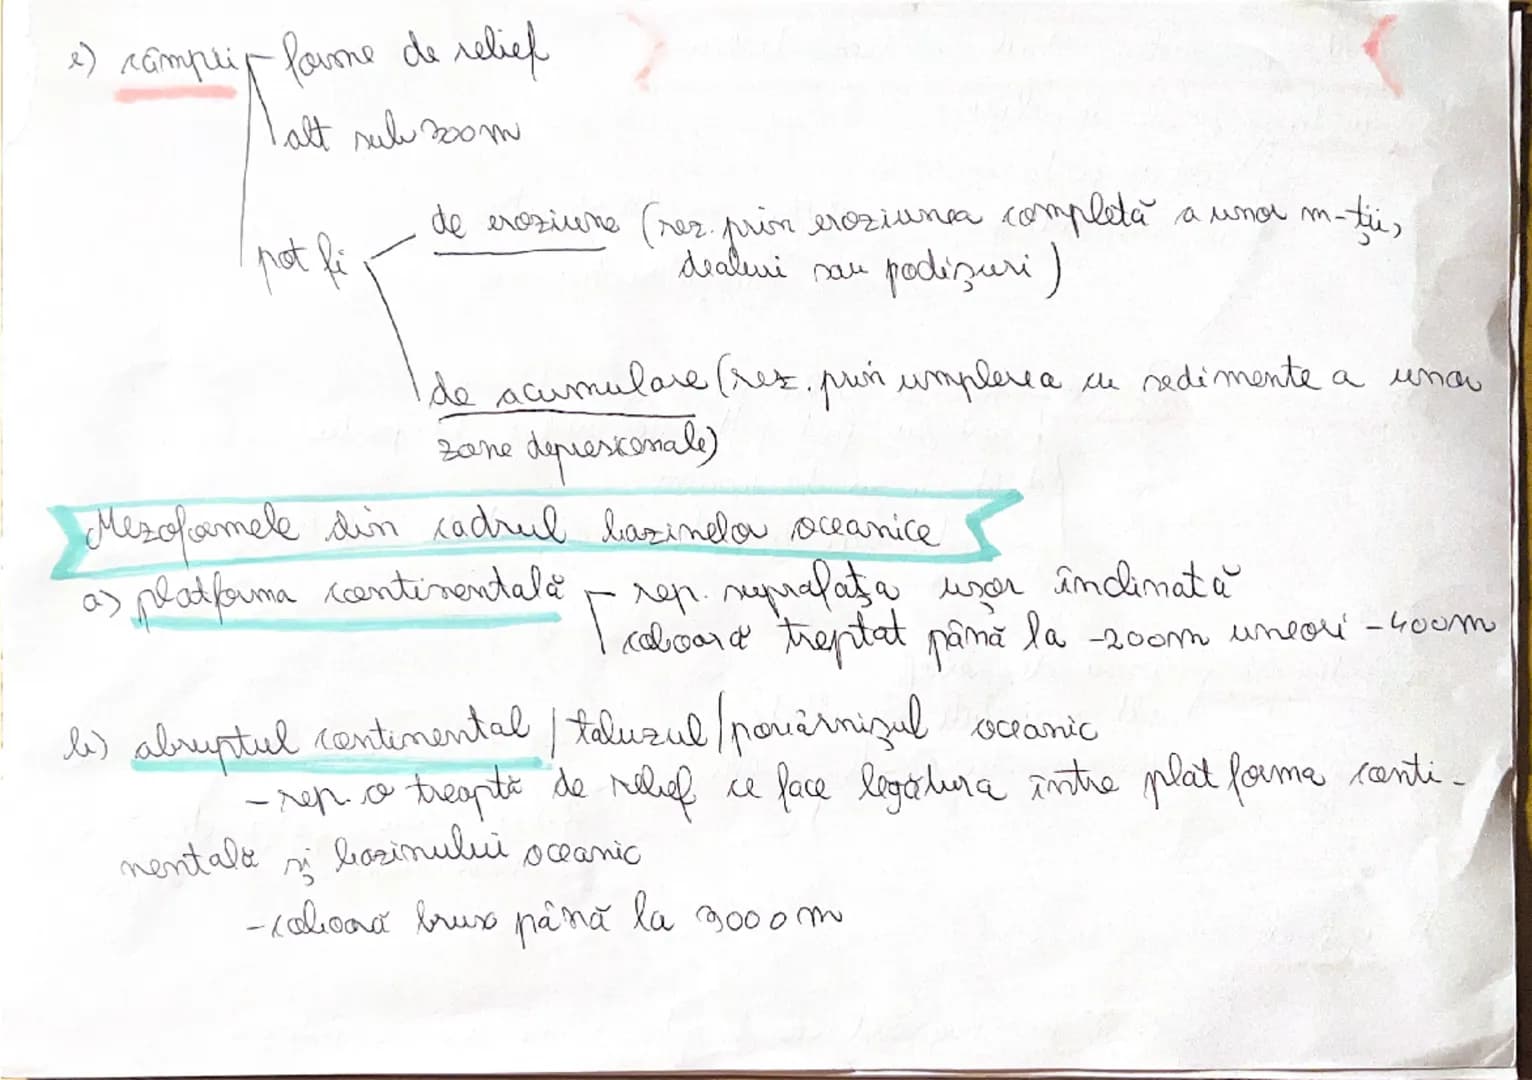 e) câmpii - forme de relief
alt sub 300m
de eroziune (rez. prin eroziunea completă a unor m-ții,
pot fi
dealuri sau podișuri)
de acumulare (rez. prin umplerea cu sedimente a unor
zone depresionale)
Mezoformele din cadrul bazinelor oceanice
a) platforma continentală - rep. suprafața ușor înclinată
coboară treptat până la -200m uneori -400m
b) abruptul continental / taluzul / povârnișul oceanic
- rep. o treaptă de relief ce face legătura între platforma conti-
nentală și bazinului oceanic
- coboară brusc până la 3000m